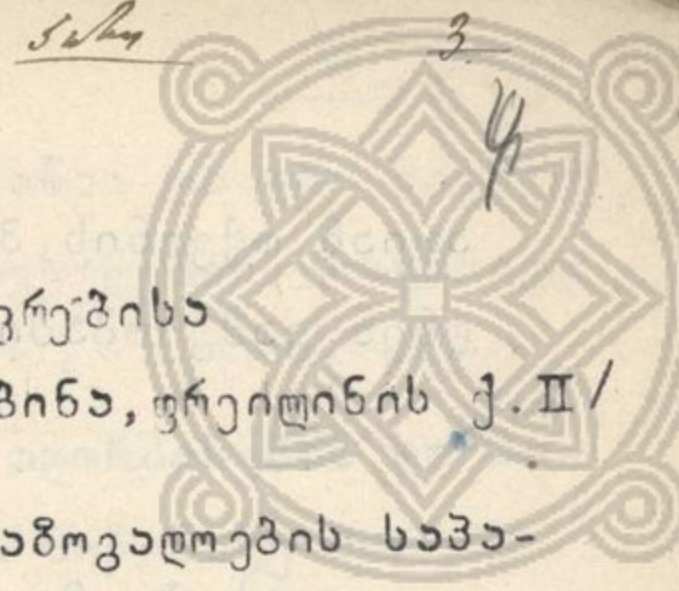 3.
ფრებისა
ბინა, ფრეილინის ქ. II/
აზოგადოების საპა-